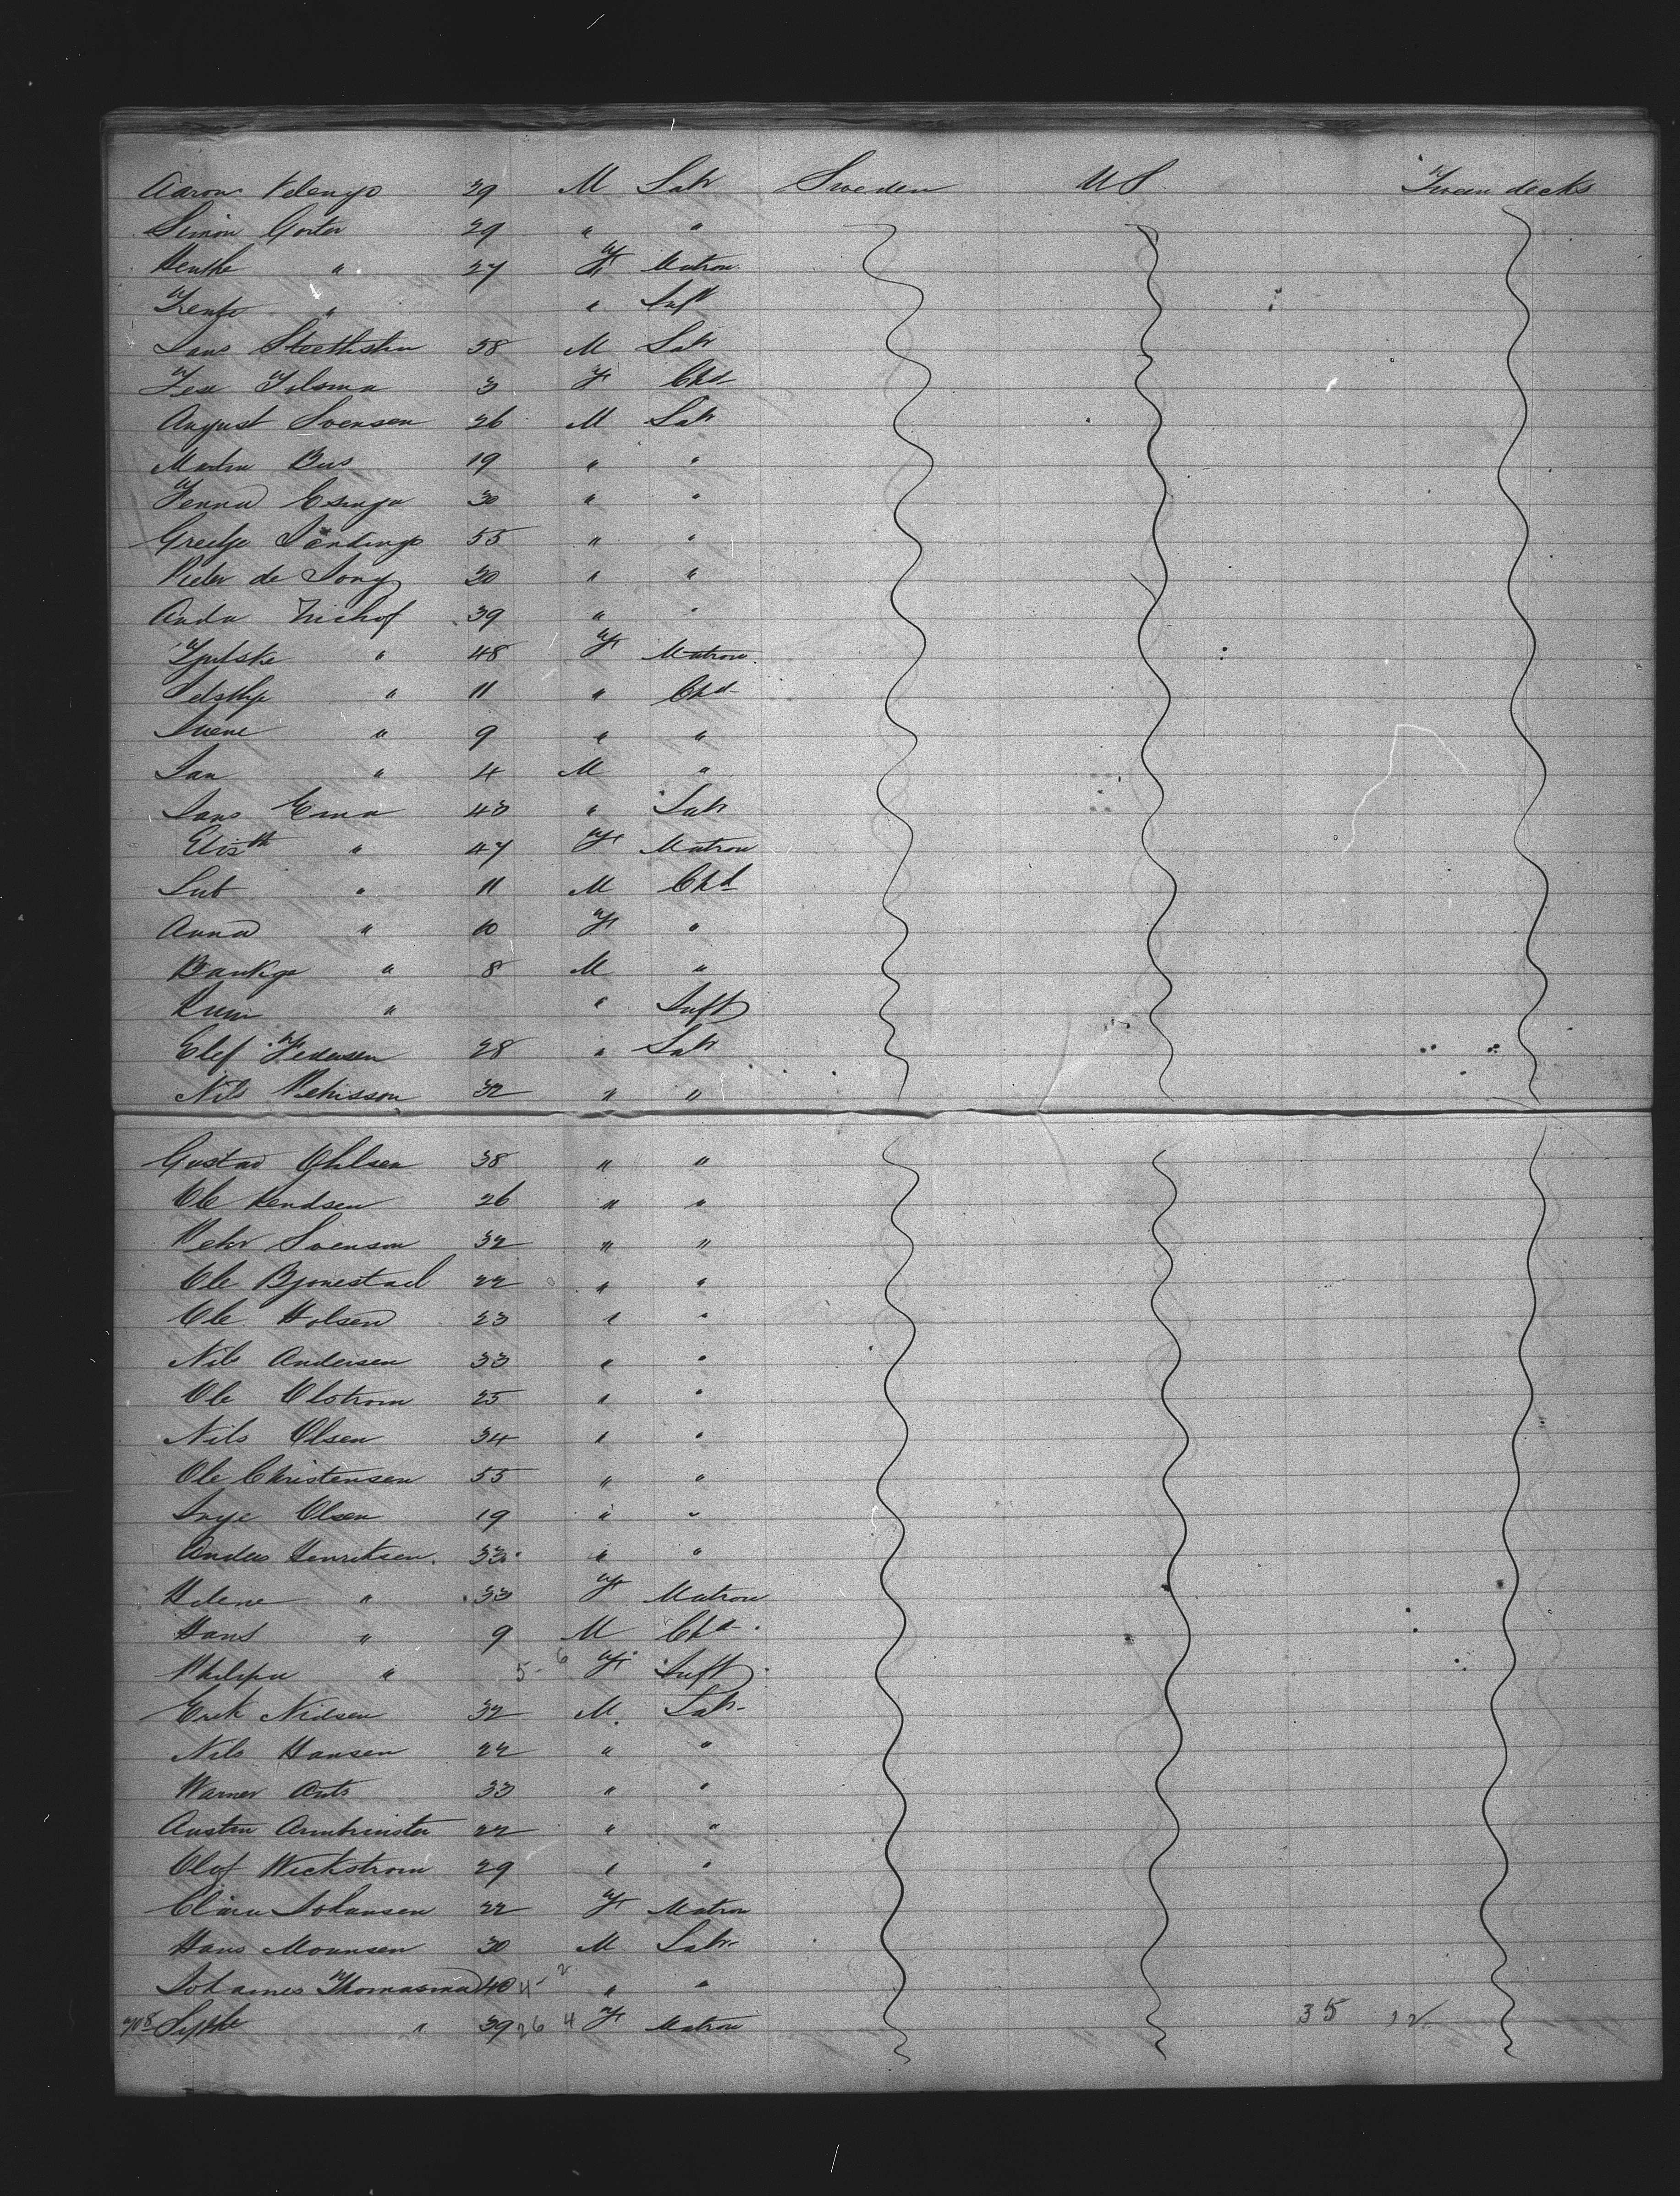 Aaron Velenga 39 M Labr Sweden US Tween decks
Simon Gorter 29 " "
Henske " 27 F Matron
Trenke " " Inft
Jans 38 M Labr
Tilsma 3 F Chd
August Svensen 26 M Labr
Martin Bus 19 " "
Fenna Esinga 30 " "
Greetje 55 " "
Pieter de Jong 30 " "
Anda 39 " "
" 48 F Matron
" 11 " Chd
" 9 " "
Jan " 4 M "
Jans Ema 43 " Labr
Elisth " 47 F Matron
Lub " 11 M Chd
Anna " 10 F "
Baukje " 8 M "
" " Inft
Elef Federsen 28 " Labr
Nils Pehisson 32 " "
Gustav Ohlsen 38 " "
Ole Kendsen 26 " "
Pehr Svenson 32 " "
Ole Bjonestad 22 " "
Ole Holsen 23 " "
Nils Andersen 33 " "
Ole Olstrom 25 " "
Nils Olsen 34 " "
Ole Christensen 55 " "
Inge Olsen 19 " "
Andus Henriksen 33 " "
Helene " 33 F Matron
Hans " 9 M Chd
" 5- 6 F Inft
Erik Nielsen 32 M Labr
Nils Hansen 22 " "
Warner Arits 33 " "
Austin Armbrinster 22 " "
Olof Wickstrom 29 " "
Clara Johansen 22 F Matron
Hans Mounsen 30 M Labr
Johannes Thomasma 40 4- 2 " "
Sipke " 39 26 4 F Matron 35 12